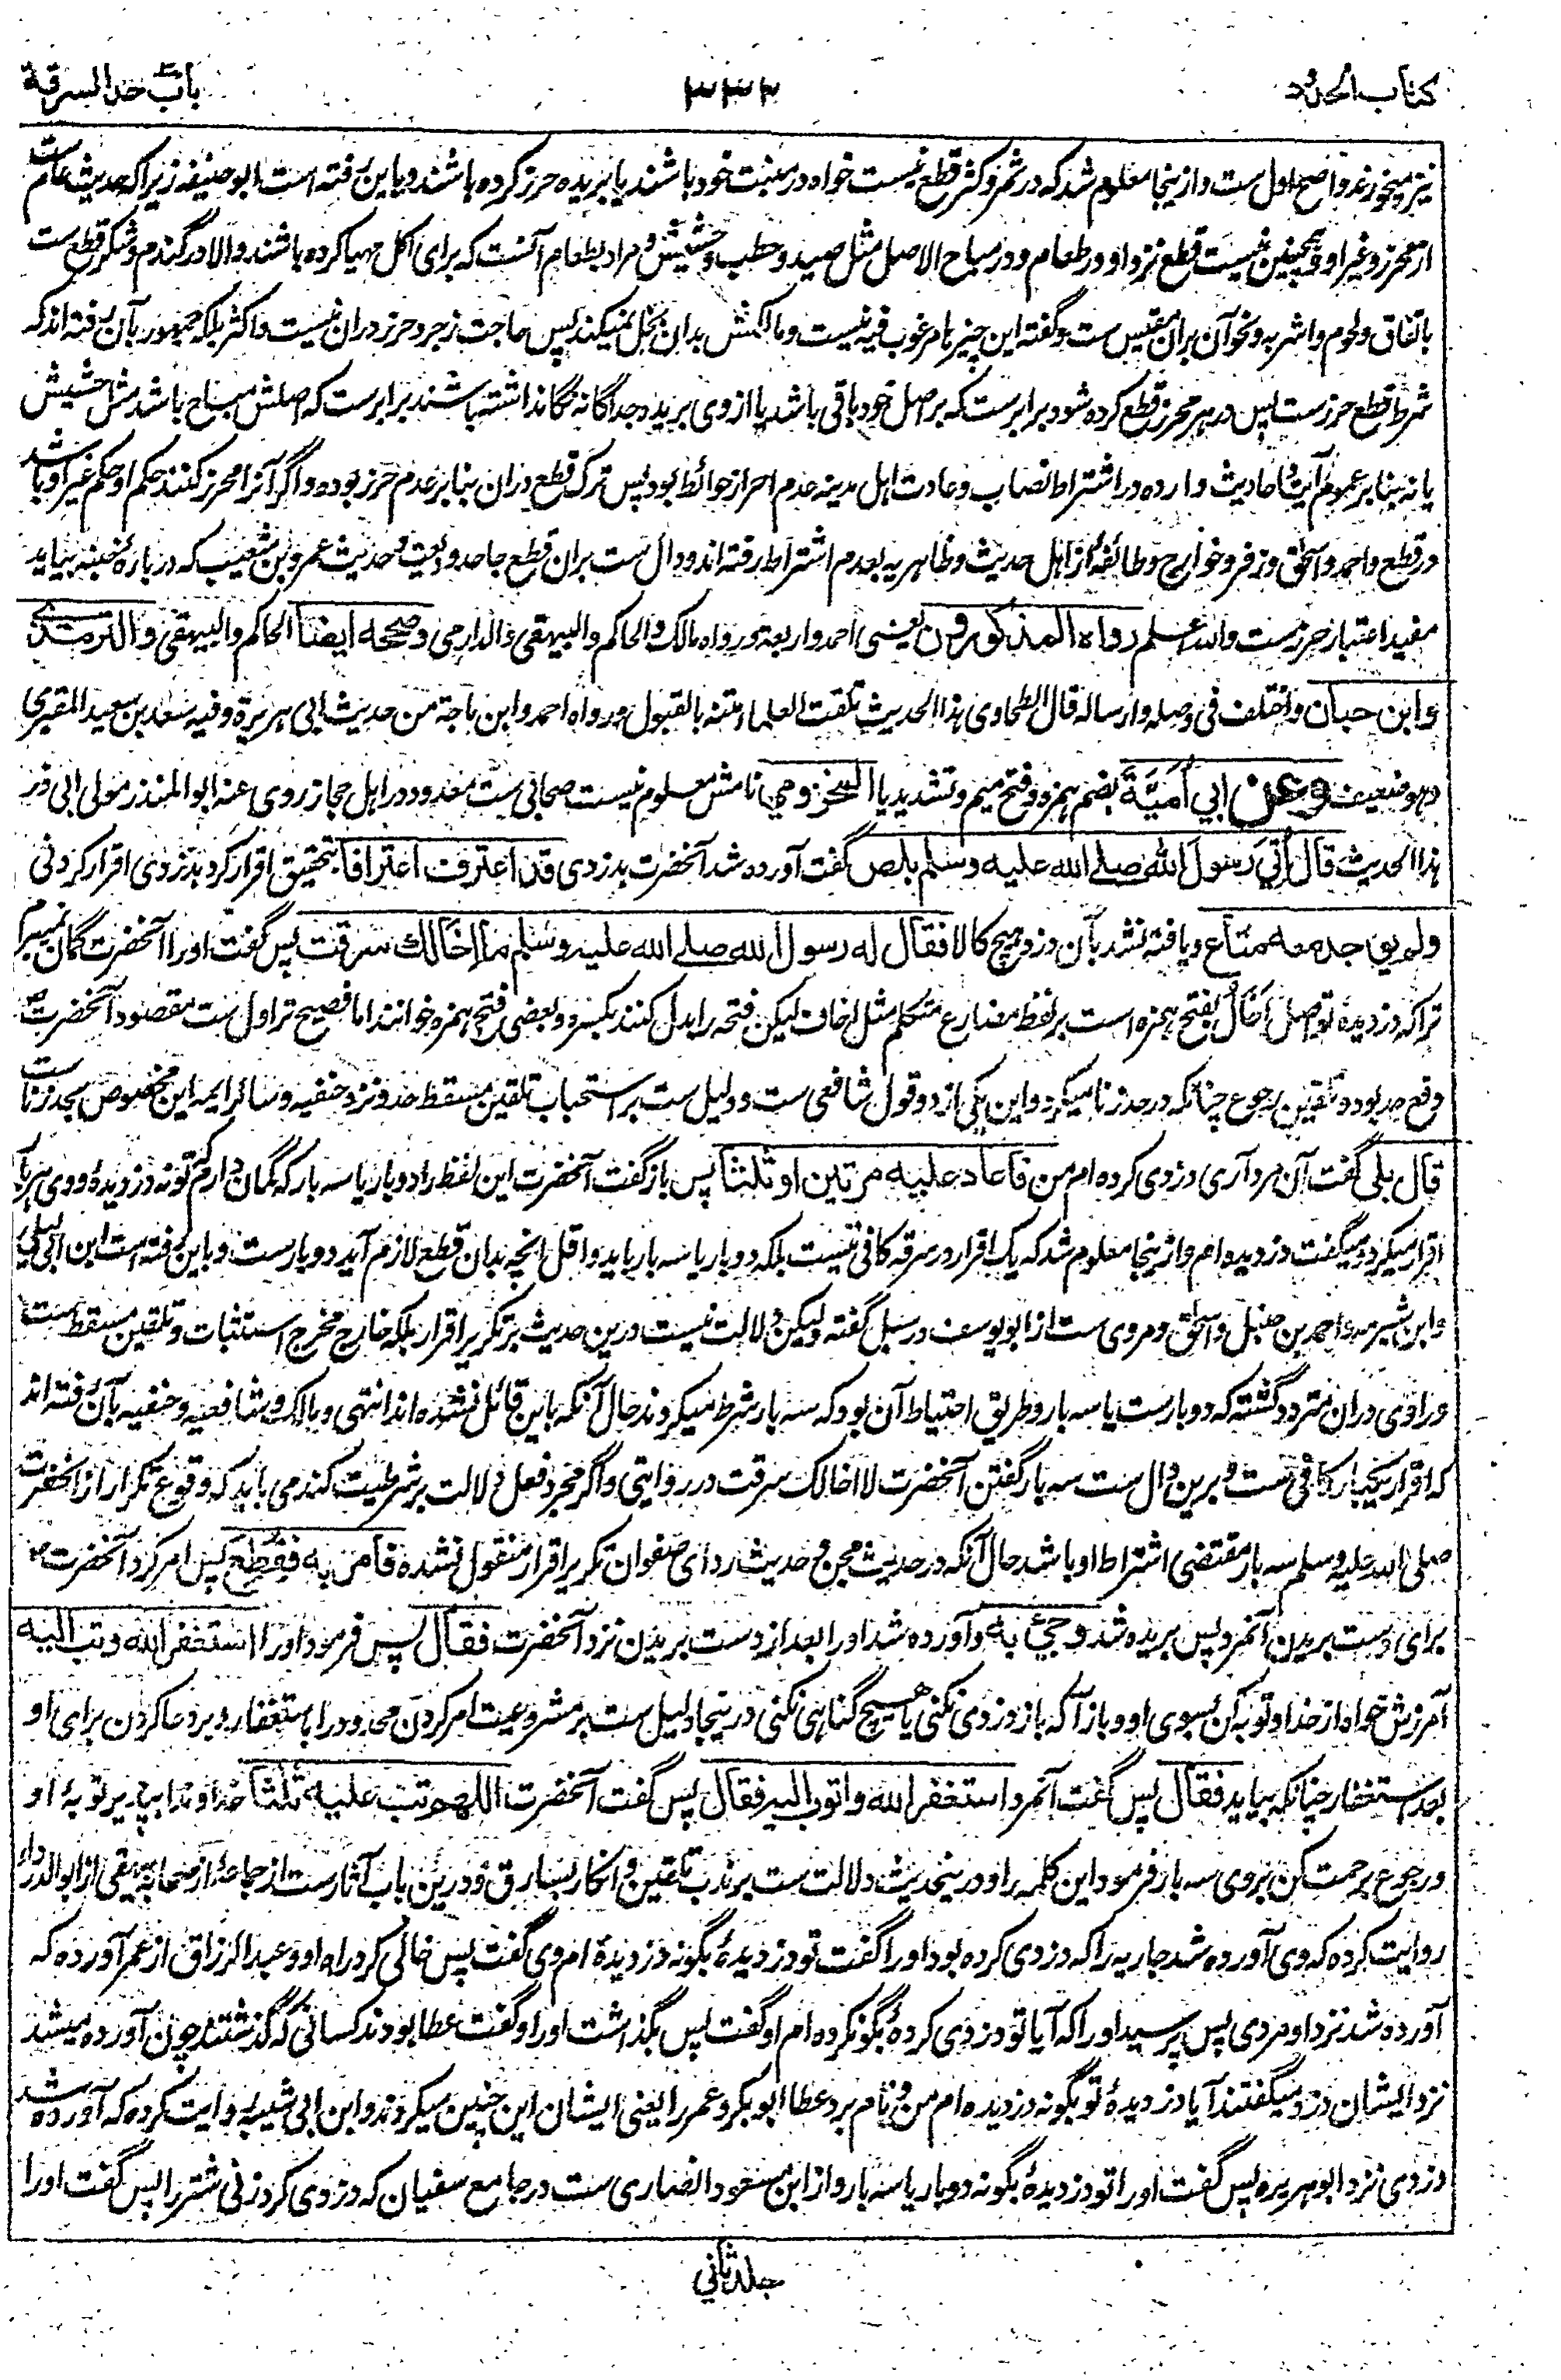 کتاب الحدود
۳۳۳
باب حد السرقة
نیز و میخورند و اصح اول ست و ازینجا معلوم شد که در ثمر و کثر قطع نیست خواه در منبت خود باشند یا بریده حرز کرده باشند و باین رفته است ابو حنیفه زیرا که حدیث عام ست
از محرز و غیر او و همچنین نیست قطع نزد او در طعام و در مباح الاصل مثل صید و حطب و حشیش و مراد بطعام آنست که برای اکل مهیا کرده باشند و الا در گندم و شکر قطع ست
باتفاق و لحوم و اشربه و نحو آن بران مقیس ست و گفته این چیزها مرغوب فیه نیست و مالکش بدان بخل نمیکند پس حاجت زجر و حرز دران نیست و اکثر بلکه جمهور بآن رفته اند که
شرط قطع حرزست پس در هر محرز قطع کرده شود برابرست که بر اصل خود باقی باشد یا از وی بریده جداگانه نگاه داشته باشند برابرست که اصلش مباح باشد مثل حشیش
یا نه بنا بر عموم آیت و احادیث وارده در اشتراط نصاب و عادت اهل مدینه عدم احراز حوائط بود پس ترک قطع دران بنابر عدم حرز بوده و اگر آنرا محرز کنند حکم او حکم غیر او باشد
در قطع و احمد و اسحق و زفر و خوارج و طائفهٔ از اهل حدیث و ظاهریه بعدم اشتراط رفته اند و دال ست بران قطع جاحد ودیعت و حدیث عمرو بن شعیب که دربارهٔ خبنه بیاید
مفید اعتبار حرزست والله اعلم رواه المذکورون یعنی احمد و اربعة و رواه مالک و الحاکم و البیهقی و الدارمی و صححه ایضا الحاکم و البیهقی و الترمذی
و ابن حبان و اختلف فی وصله و ارساله قال الطحاوی هذا الحدیث تلقت العلماء متنه بالقبول و رواه احمد و ابن ماجة من حدیث ابی هریرة و فیه سعد بن سعید المقبری
و هو ضعیف وعن ابي أمَيَّة بضم همزه و فتح میم و تشدید یا المخزومي نامش معلوم نیست صحابی ست معدود در اهل حجاز روی عنه ابو المنذر مولی ابی ذر
هذا الحدیث قال أتي رسول الله صلى الله عليه وسلم بلص گفت آورده شد آنحضرت بدزدی قد اعترف اعترافا بتحقیق اقرار کرد بدزدی اقرار کردنی
ولم يوجد معه متاع و یافته نشد بآن دزد هیچ کالا فقال له رسول الله صلى الله عليه وسلم ما إخالك سرقت پس گفت او را آنحضرت گمان نمیبرم
ترا که دزدیدهٔ تو اصل اَخَالُ بفتح همزه است بر لفظ مضارع متکلم مثل اخاف لیکن فتحه را بدل کنند بکسره و بعضی بفتح همزه خوانند اما فصیح تر اول ست مقصود آنحضرت
دفع حد بود و تلقین رجوع چنانکه در حد زنا میکرد و این یکی از دو قول شافعی ست و دلیل ست بر استحباب تلقین مسقط حد و نزد حنفیه و سائر ایمه این مخصوص بحد زناست
قال بلى گفت آن مرد آری دزدی کرده ام من فاعاد عليه مرتين او ثلثا پس باز گفت آنحضرت این لفظ را دو بار یا سه بار که گمان دارم که تو نه دزدیدهٔ و وی هر بار
اقرار میکرد و میگفت دزدیده ام و ازینجا معلوم شد که یک اقرار در سرقه کافی نیست بلکه دو بار یا سه بار باید و اقل انچه بدان قطع لازم آید دو بار ست و باین رفته است ابن ابی لیلی
و ابن شبرمه و احمد بن حنبل و اسحق و مروی ست از ابو یوسف در سبل گفته ولیکن دلالت نیست درین حدیث بر تکریر اقرار بلکه خارج مخرج استثبات و تلقین مسقط ست
و راوی دران متردد گشته که دو بارست یا سه بار و طریق احتیاط آن بود که سه بار شرط میکردند حال آنکه باین قائل نشده اند انتهی و مالک و شافعیه و حنفیه بآن رفته اند
که اقرار یکبار کافی ست و برین دال ست سه بار گفتن آنحضرت لا اخالک سرقت در روایتی و اگر مجرد فعل دلالت بر شرطیت کند می باید که وقوع تکرار از آنحضرت
صلی الله علیه وسلم سه بار مقتضی اشتراط او باشد حال آنکه در حدیث مجن و حدیث ردای صفوان تکریر اقرار منقول نشده فامر به فقطع پس امر کرد آنحضرت
برای دست بریدن آنمرد پس بریده شد وجئ به و آورده شد او را بعد از دست بریدن نزد آنحضرت فقال پس فرمود او را استغفر الله وتب اليه
آمرزش خواه از خدا و توبه کن بسوی او و باز آ که باز دزدی نکنی یا هیچ گناهی نکنی درینجا دلیل ست بر مشروعیت امر کردن محدود را باستغفار و بر دعا کردن برای او
بعد استغفار چنانکه بیاید فقال پس گفت آنمرد استغفر الله واتوب اليه فقال پس گفت آنحضرت اللهم تب عليه ثلثا خداوندا بپذیر توبهٔ او
و رجوع برحمت کن بروی سه بار فرمود این کلمه را و درینحدیث دلالت ست بر ندب تلقین و انکار بسارق و درین باب آثارست از جماعهٔ از صحابه بیهقی از ابو الدرداء
روایت کرده که وی آورده شد جاریه را که دزدی کرده بود او را گفت تو دزدیدهٔ بگو نه دزدیدهٔ ام وی گفت پس خالی کرد راه او و عبد الرزاق از عمر آورده که
آورده شد نزد او مردی پس پرسید او را که آیا تو دزدی کردهٔ بگو نکرده ام او گفت پس بگذاشت او را و گفت عطا بودند کسانی که گذشتند چون آورده میشد
نزد ایشان دزد میگفتند آیا دزدیدهٔ تو بگو نه دزدیده ام من و نام برد عطا ابو بکر و عمر را یعنی ایشان این چنین میکردند و ابن ابی شیبه روایت کرده که آورده شد
دزدی نزد ابو هریره پس گفت او را تو دزدیدهٔ بگو نه دو بار یا سه بار و از ابن مسعود انصاری ست در جامع سفیان که دزدی کرد زنی شتر را پس گفت او را
جلد ثاني